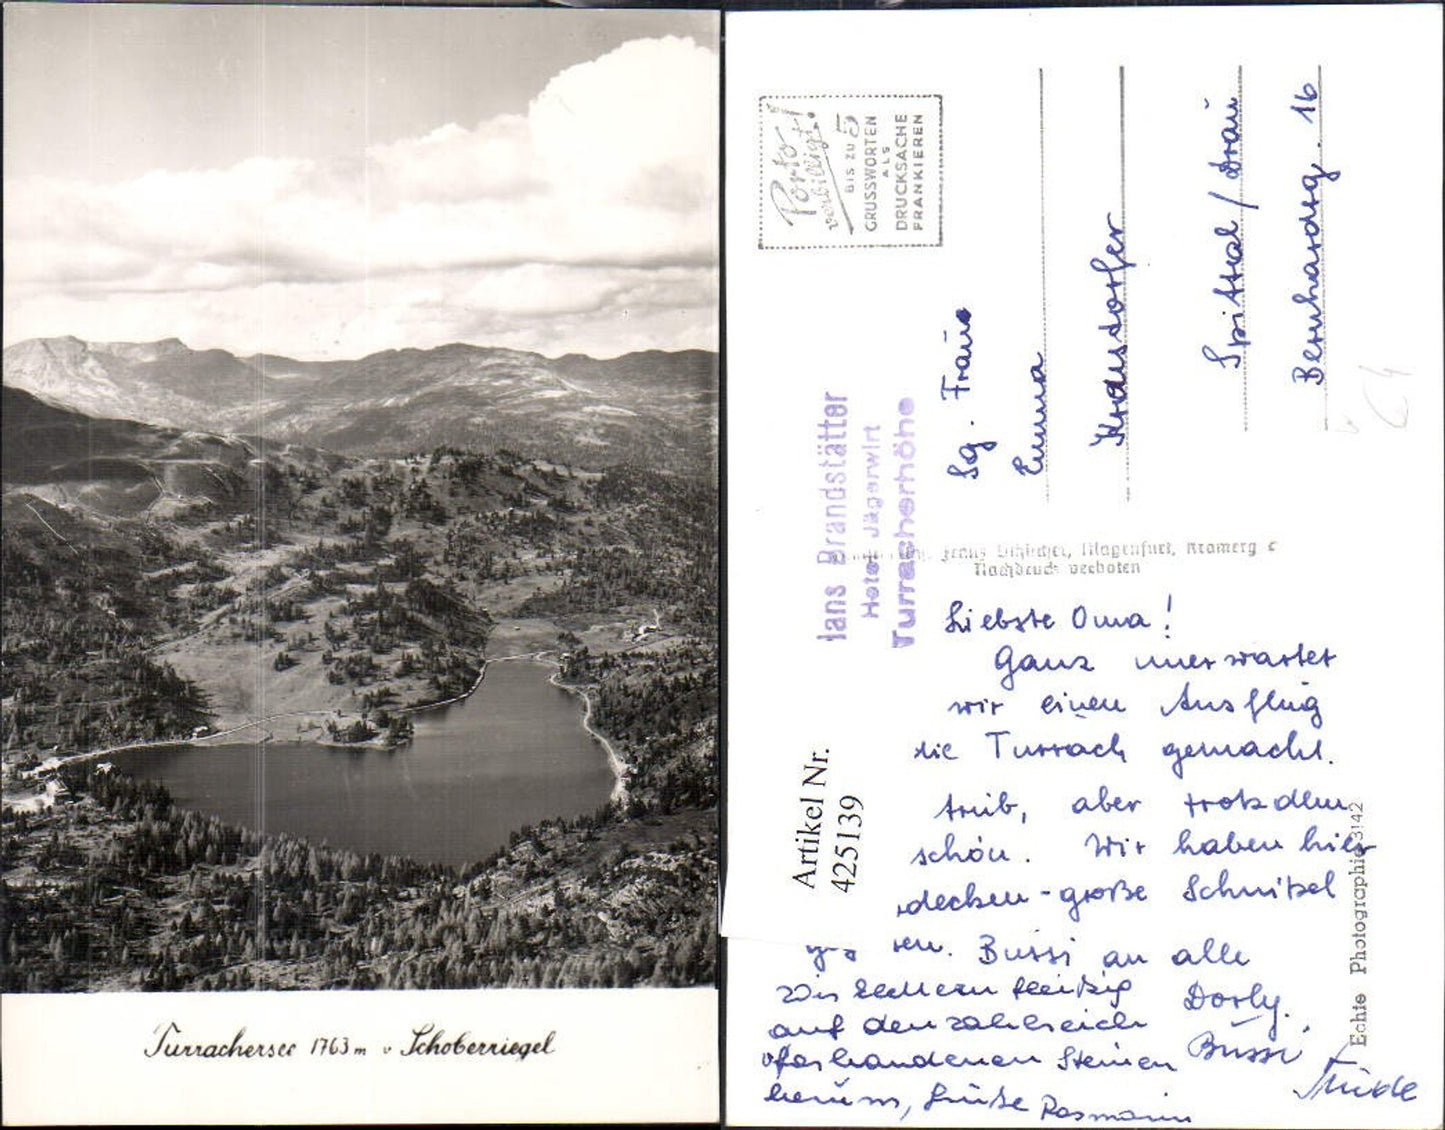 Turrachersee 1763 m v Schoberriegel
Porto
verbilligt!
BIS ZU 5
GRUSSWORTEN
ALS
DRUCKSACHE
FRANKIEREN
Hans Brandstätter
Hotel Jägerwirt
Turracherhöhe
Sg. Frau
Emma
Kraustofer
Spittal / Drau
Bernhardtg. 16
64
Franz Klagenfurt, Kramerg
Nachdruck verboten
Artikel Nr.
425139
Echte Photographie 3142
Liebste Oma!
Ganz unerwartet
wir einen Ausflug
die Turrach gemacht.
trüb, aber trotzdem
schön. Wir haben hier
decken-große Schnitzel
Bussi an alle
Wir klettern fleißig Dorly.
auf den zahlreich
vorhandenen Steinen Bussi
herum, Grüße Rosmarin